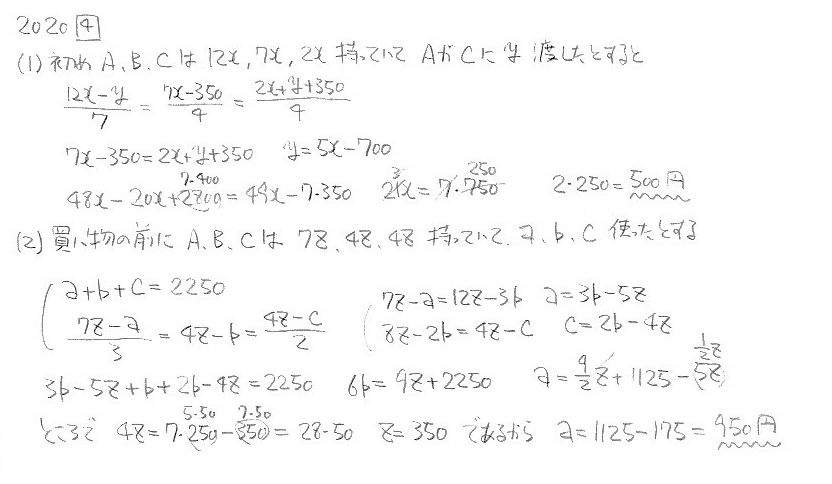 2020 4
(1) 初め A、B、C は 12x, 7x, 2x 持っていて AがCに y 渡したとすると
(12x-y)/7 = (7x-350)/4 = (2x+y+350)/4
7x-350=2x+y+350 y=5x-700
48x-20x+2800=49x-7·350 21x=7·750 2·250=500円
7·400 3 250
(2) 買い物の前に A、B、Cは 7z、4z、4z 持っていて、a、b、c 使ったとする
a+b+c=2250
(7z-a)/3 = 4z-b = (4z-c)/2
7z-a=12z-3b a=3b-5z
8z-2b=4z-c c=2b-4z
3b-5z+b+2b-4z=2250 6b=9z+2250 a=9/2z+1125-5z
1/2z
ところで 4z=7·250-350=28·50 z=350 であるから a=1125-175=950円
5·50 7·50